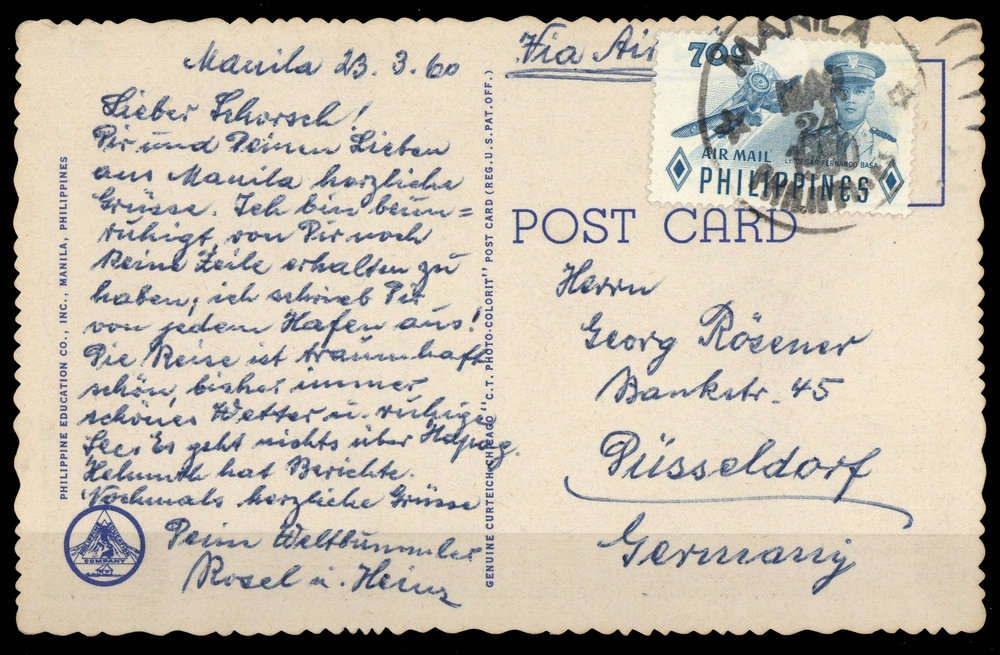 Manila 23.3.60
Lieber Schorsch!
Dir und Deinen Lieben
aus Manila herzliche
Grüsse. Ich bin beun=
ruhigt, von Dir noch
keine Zeile erhalten zu
haben; ich schrieb Dir
von jedem Hafen aus!
Die Reise ist traumhaft
schön, bisher immer
schönes Wetter u. ruhige
See. Es geht nichts über Hapag.
Helmuth hat Berichte.
Nochmals herzliche Grüsse
Deine Weltbummler
Rosel u. Heinz
PHILIPPINE EDUCATION CO., INC., MANILA, PHILIPPINES
COMPANY
GENUINE CURTEICH-CHICAGO "C.T. PHOTO-COLORIT" POST CARD (REG. U.S. PAT. OFF.)
Via Air
70c
AIR MAIL
LT. CESAR FERNANDO BASA
PHILIPPINES
MANILA
24
POST CARD
Herrn
Georg Rösener
Bankstr. 45
Düsseldorf
Germany